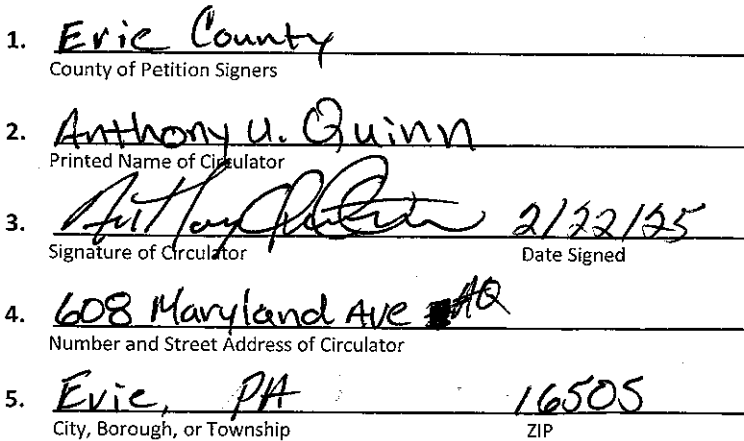 1. Erie County
County of Petition Signers
2. Anthony U. Quinn
Printed Name of Circulator
3. 2/22/25
Signature of Circulator Date Signed
4. 608 Maryland Ave AQ
Number and Street Address of Circulator
5. Erie, PA 16505
City, Borough, or Township ZIP